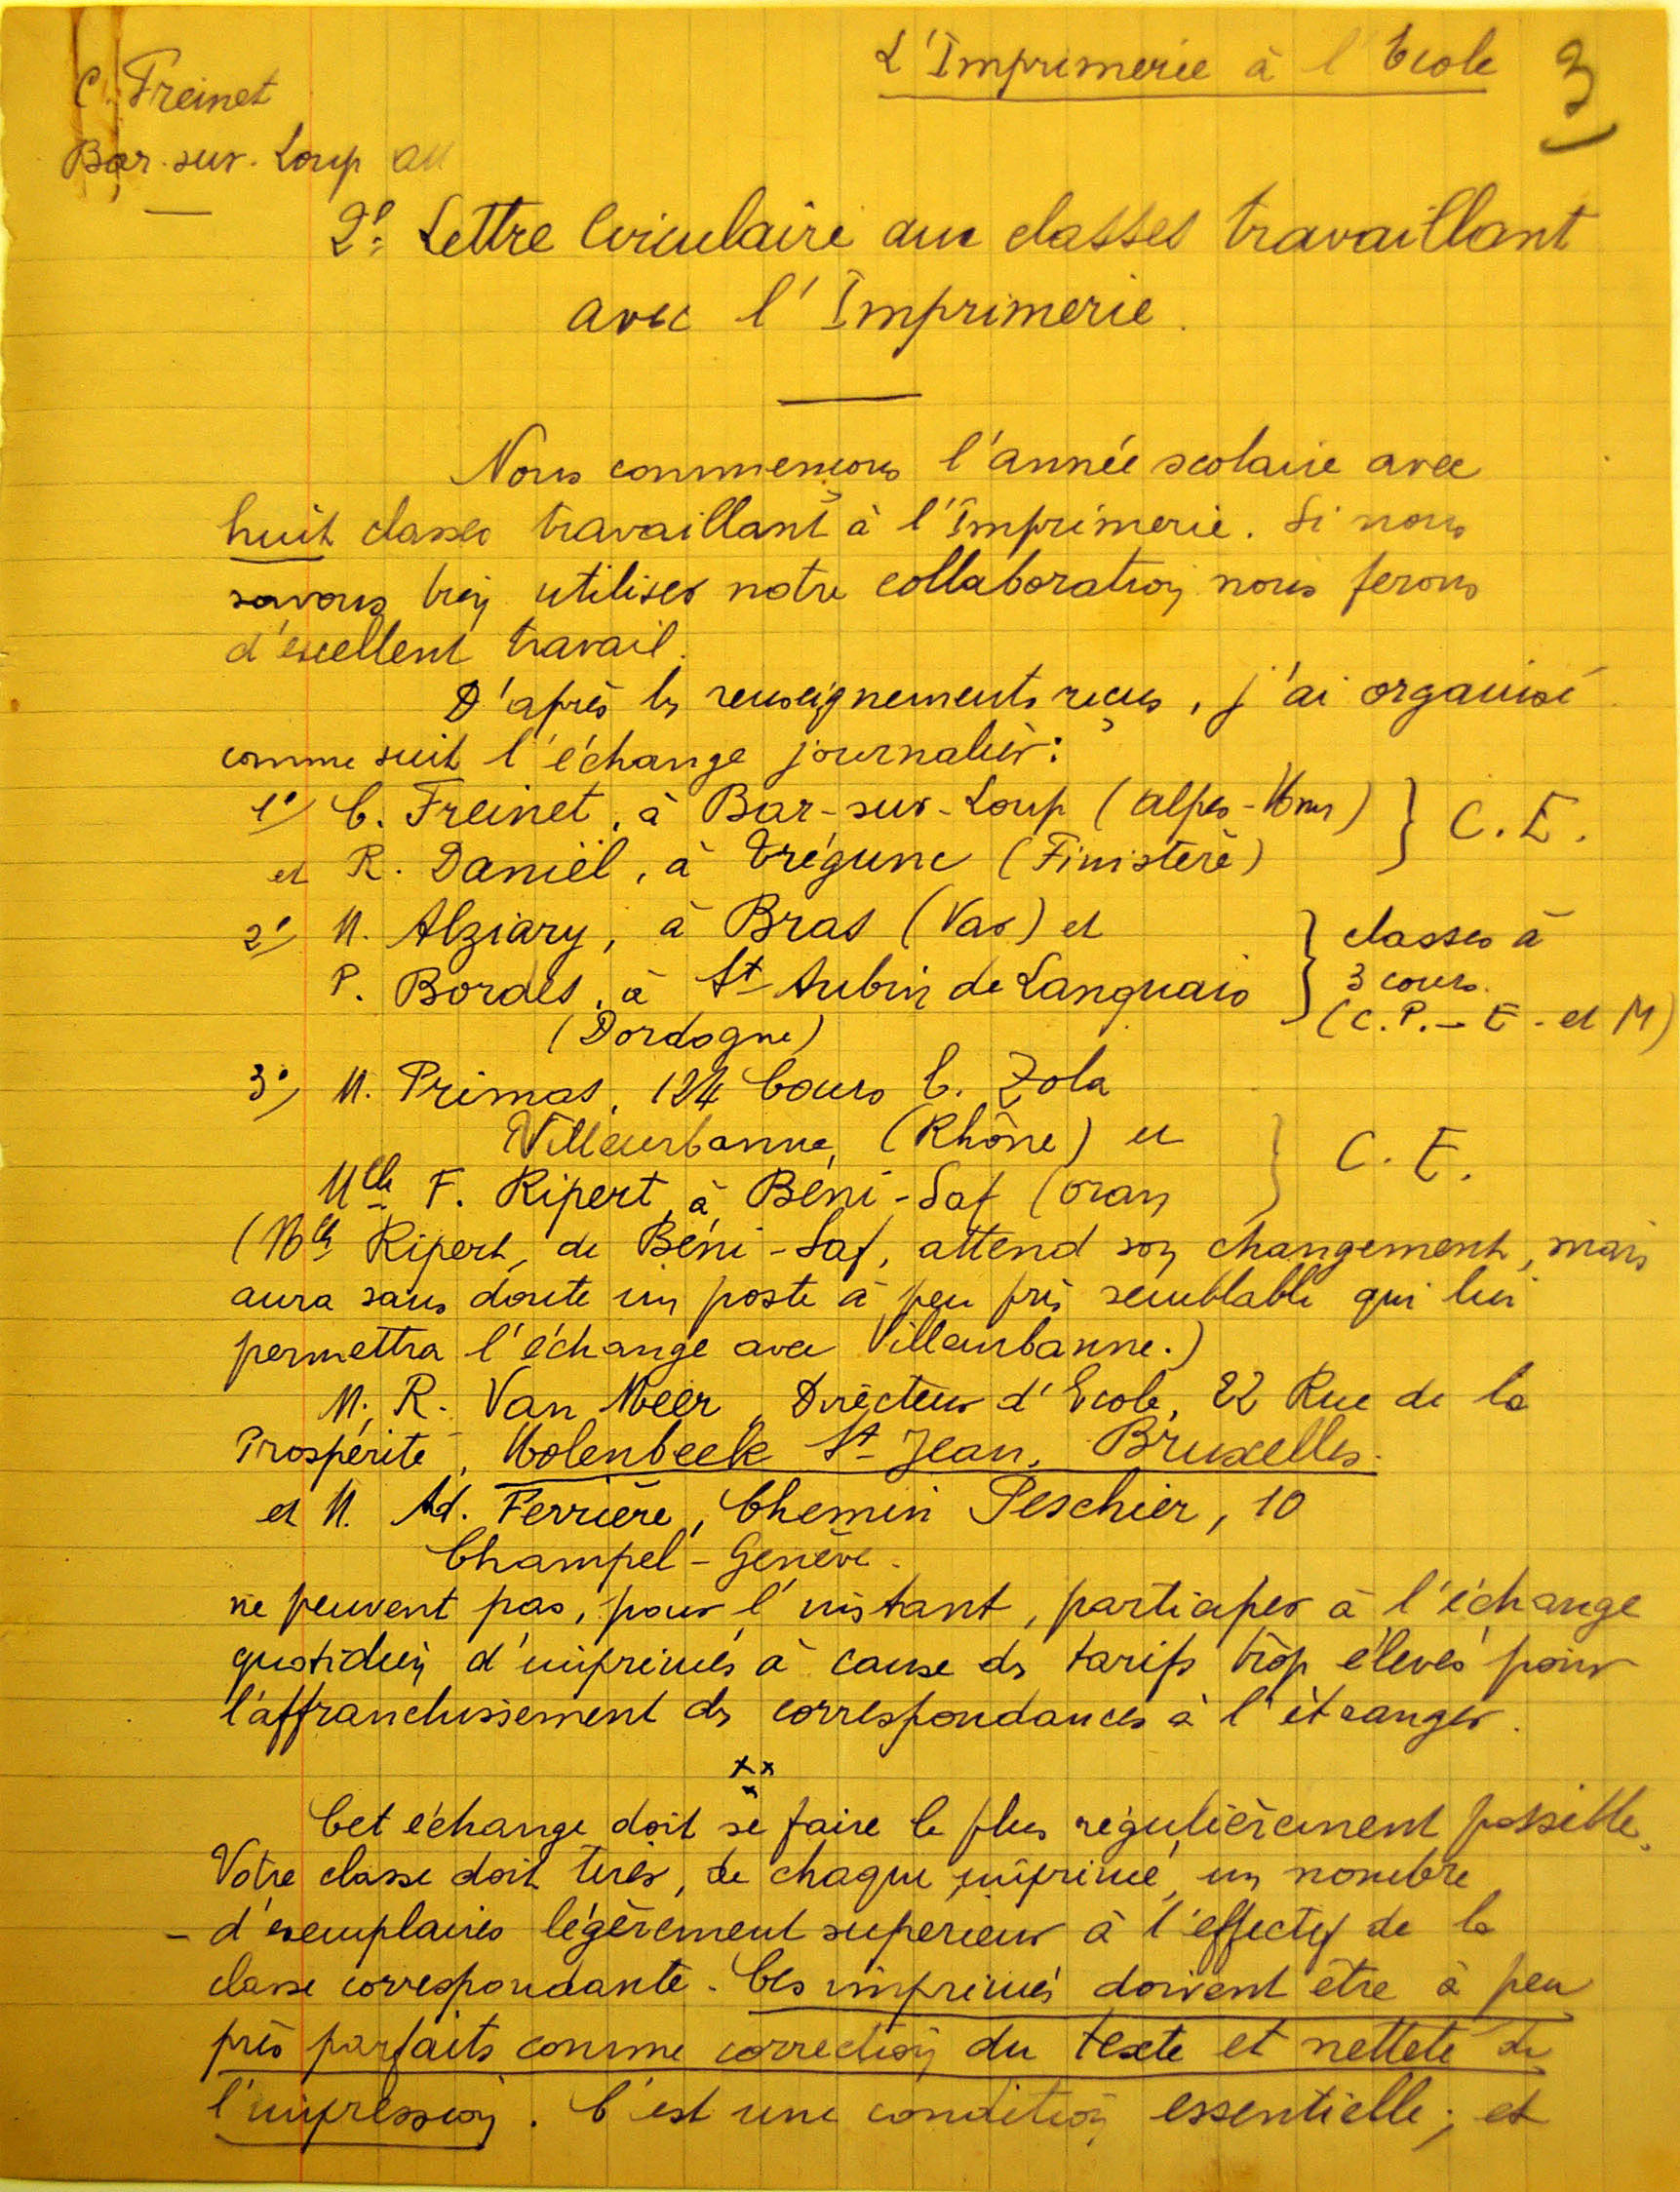 L'Imprimerie à l'Ecole
3
C. Freinet
Bar-sur-Loup AM
2e Lettre Circulaire aux classes travaillant
avec l'Imprimerie.
Nous commençons l'année scolaire avec
huit classes travaillant à l'Imprimerie. Si nous
savons bien utiliser notre collaboration nous ferons
d'excellent travail.
D'après les renseignements reçus, j'ai organisé
comme suit l'échange journalier:
1°/ C. Freinet, à Bar-sur-Loup (Alpes-Mmes)
et R. Daniel, à Trégunc (Finistère)
} C. E.
2°/ M. Alziary, à Bras (Var) et
P. Bordes, à St Aubin de Lanquais
(Dordogne)
} classes à
3 cours.
(C.P. - E - et M)
3°/ M. Primas, 124 Cours E. Zola
Villeurbanne, (Rhône) et
Mlle F. Ripert, à Béni-Saf (Oran
} C. E.
(Mlle Ripert, de Béni-Saf, attend son changement, mais
aura sans doute un poste à peu près semblable qui lui
permettra l'échange avec Villeurbanne.)
M. R. Van Meer, Directeur d'Ecole, 22 Rue de la
Prospérité, Molenbeek St Jean, Bruxelles.
et M. Ad. Ferrière, Chemin Peschier, 10
Champel-Genève.
ne peuvent pas, pour l'instant, participer à l'échange
quotidien d'imprimés à cause des tarifs trop élevés pour
l'affranchissement des correspondances à l'étranger.
Cet échange doit se faire le plus régulièrement possible.
Votre classe doit tirer, de chaque imprimé, un nombre
- d'exemplaires légèrement supérieur à l'effectif de la
classe correspondante. Ces imprimés doivent être à peu
près parfaits comme correction du texte et netteté de
l'impression. C'est une condition essentielle; et